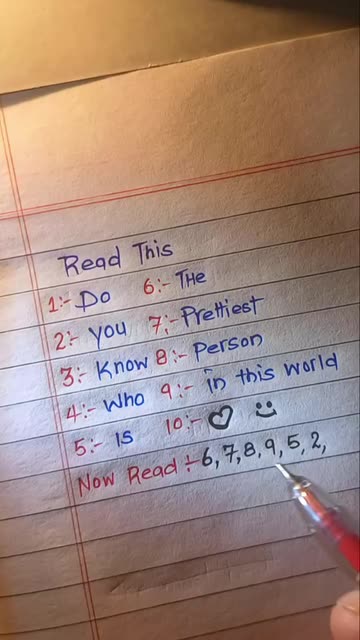 Read This
1:- Do 6:- The
2:- you 7:- Prettiest
3:- Know 8:- Person
4:- Who 9:- in this world
5:- Is 10:- ♡ :)
Now Read :- 6, 7, 8, 9, 5, 2,